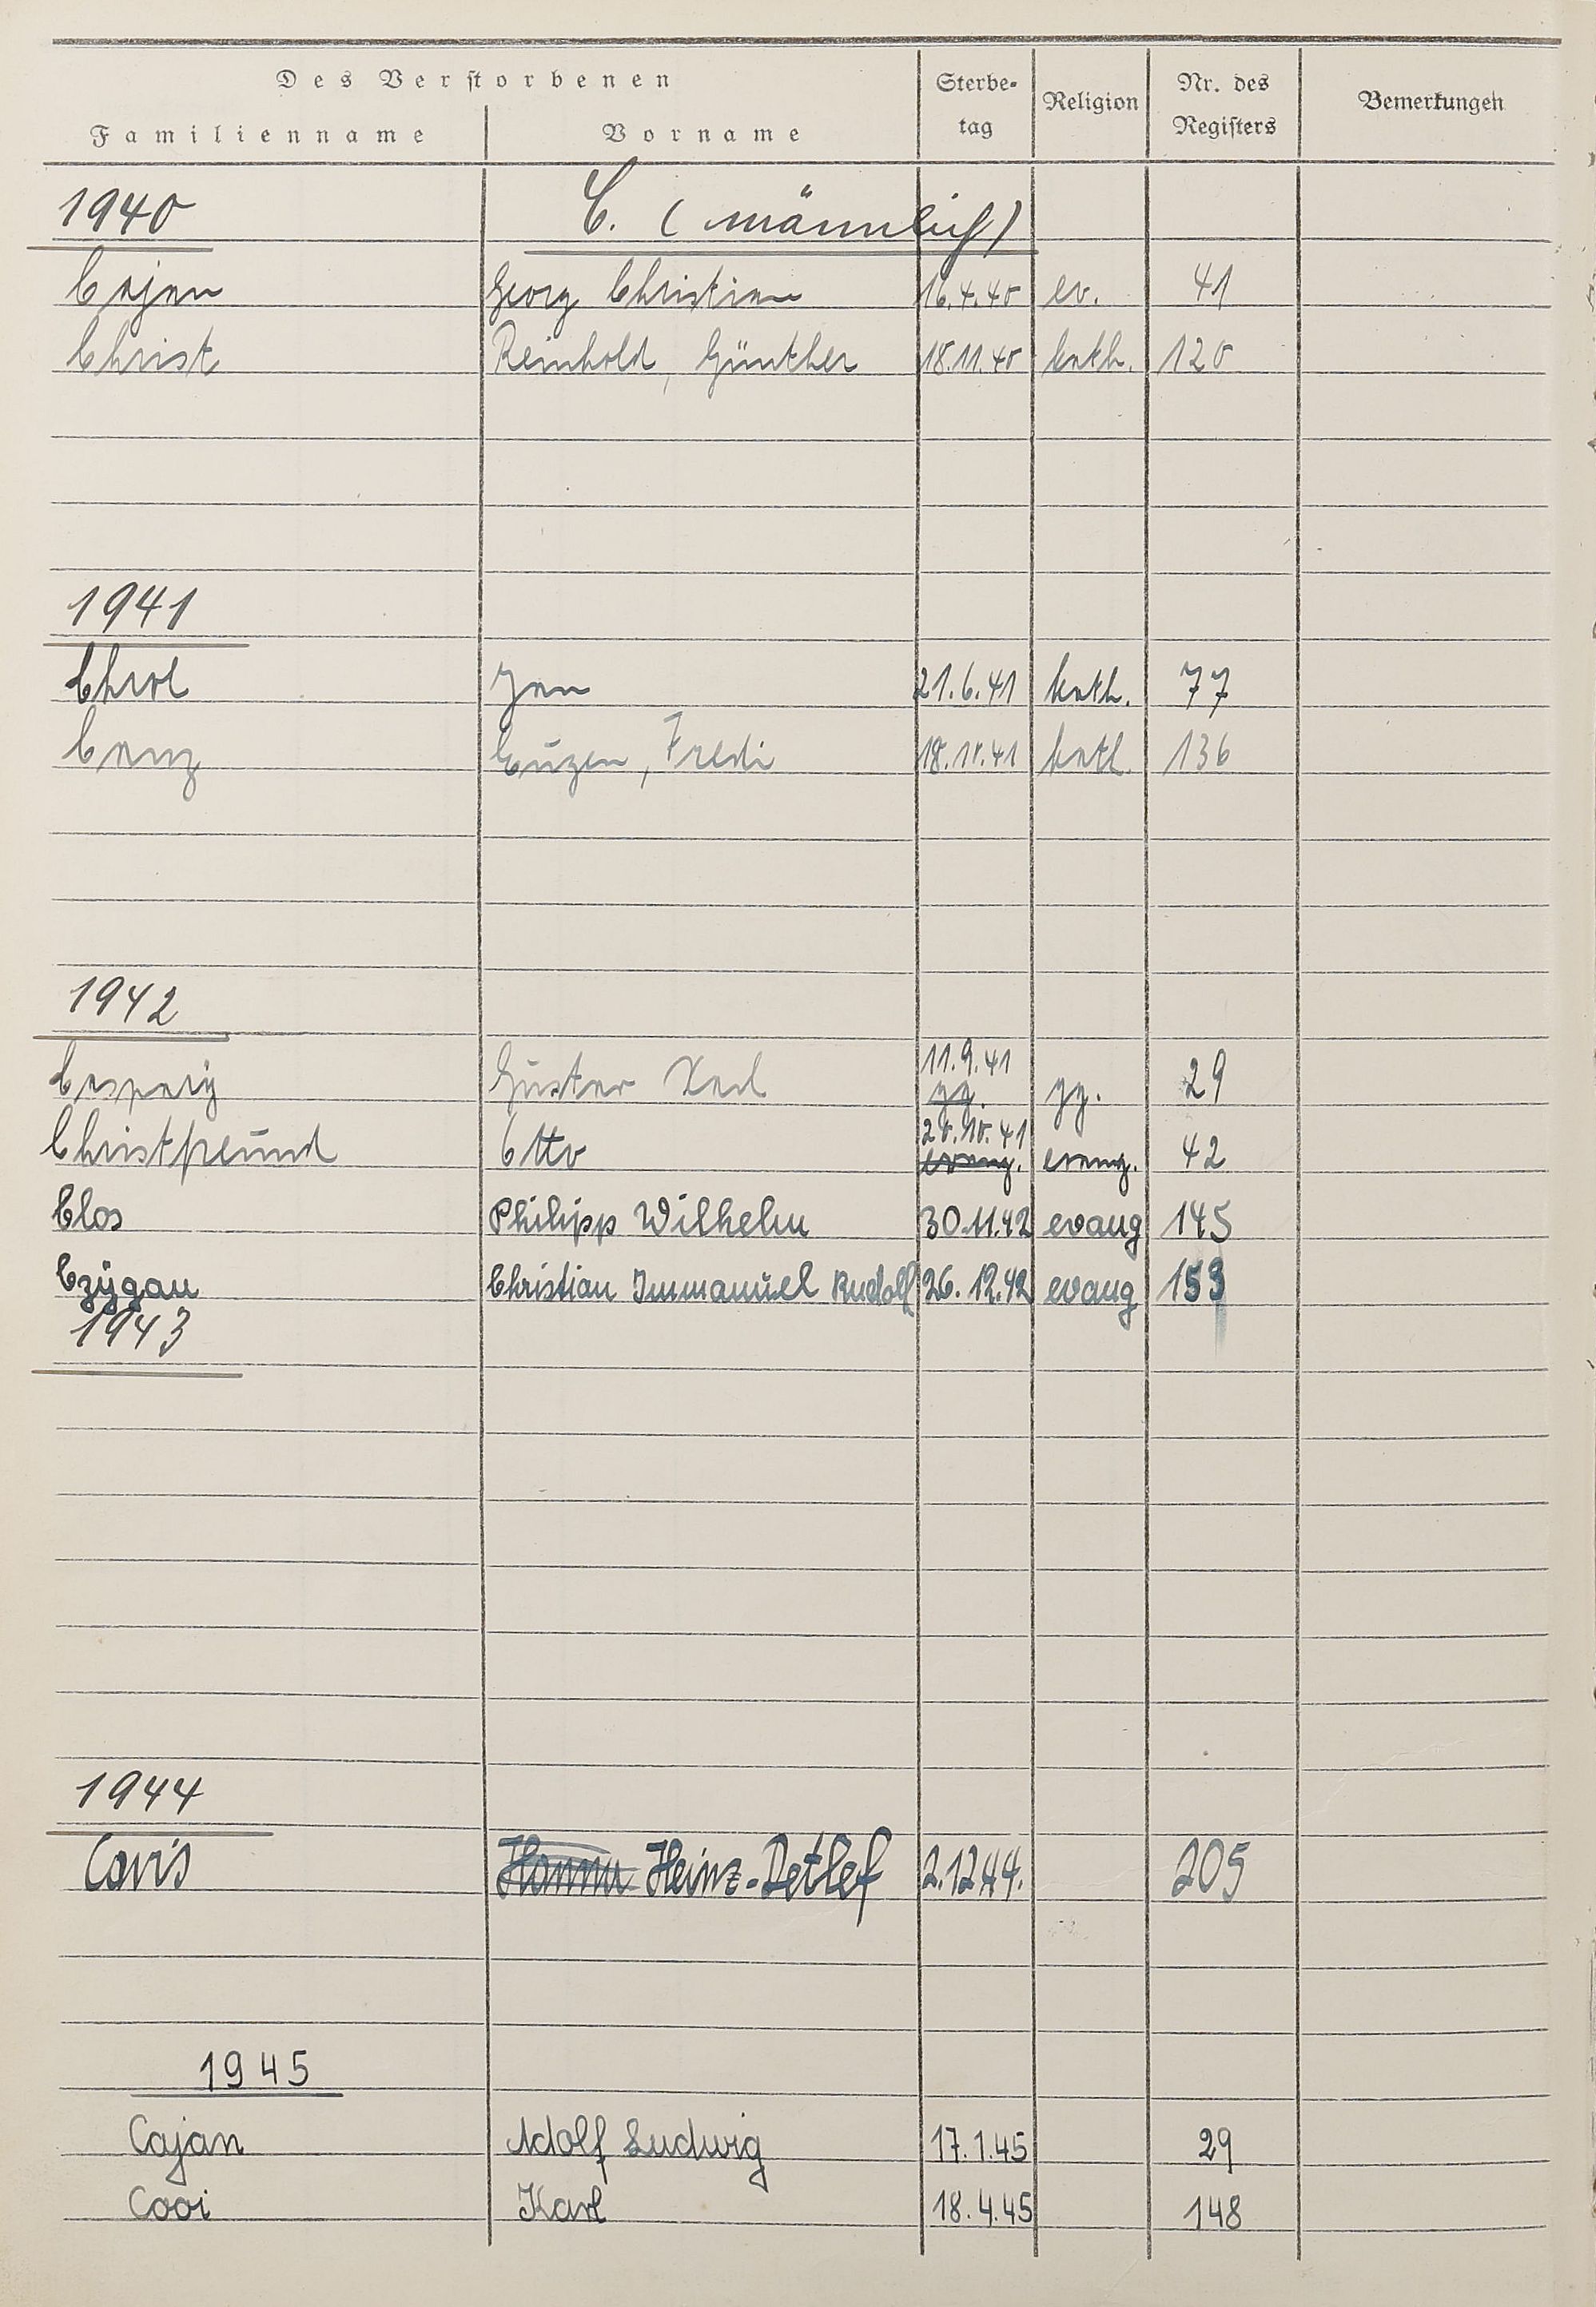 Des Verstorbenen
Familienname Vorname Sterbe-tag Religion Nr. des Registers Bemerkungen
1940 C. (männlich)
Cajan Georg Christian 16.4.40 ev. 41
Christ Reinhold, Günther 18.11.40 kath. 120
1941
Chrol Jan 21.6.41 kath. 77
Canz Eugen, Fredi 18.11.41 kath. 136
1942
Caspary Gustav Karl 11.9.41 gg. gg. 29
Christfreund Otto 20.10.41 evang. evang. 42
Clos Philipp Wilhelm 30.11.42 evang 145
Czygan Christian Immanuel Rudolf 26.12.42 evang 153
1943
1944
Heinz-Detlef 2.12.44. 205
1945
Cajan Adolf Ludwig 17.1.45 29
Cooi Karl 18.4.45 148